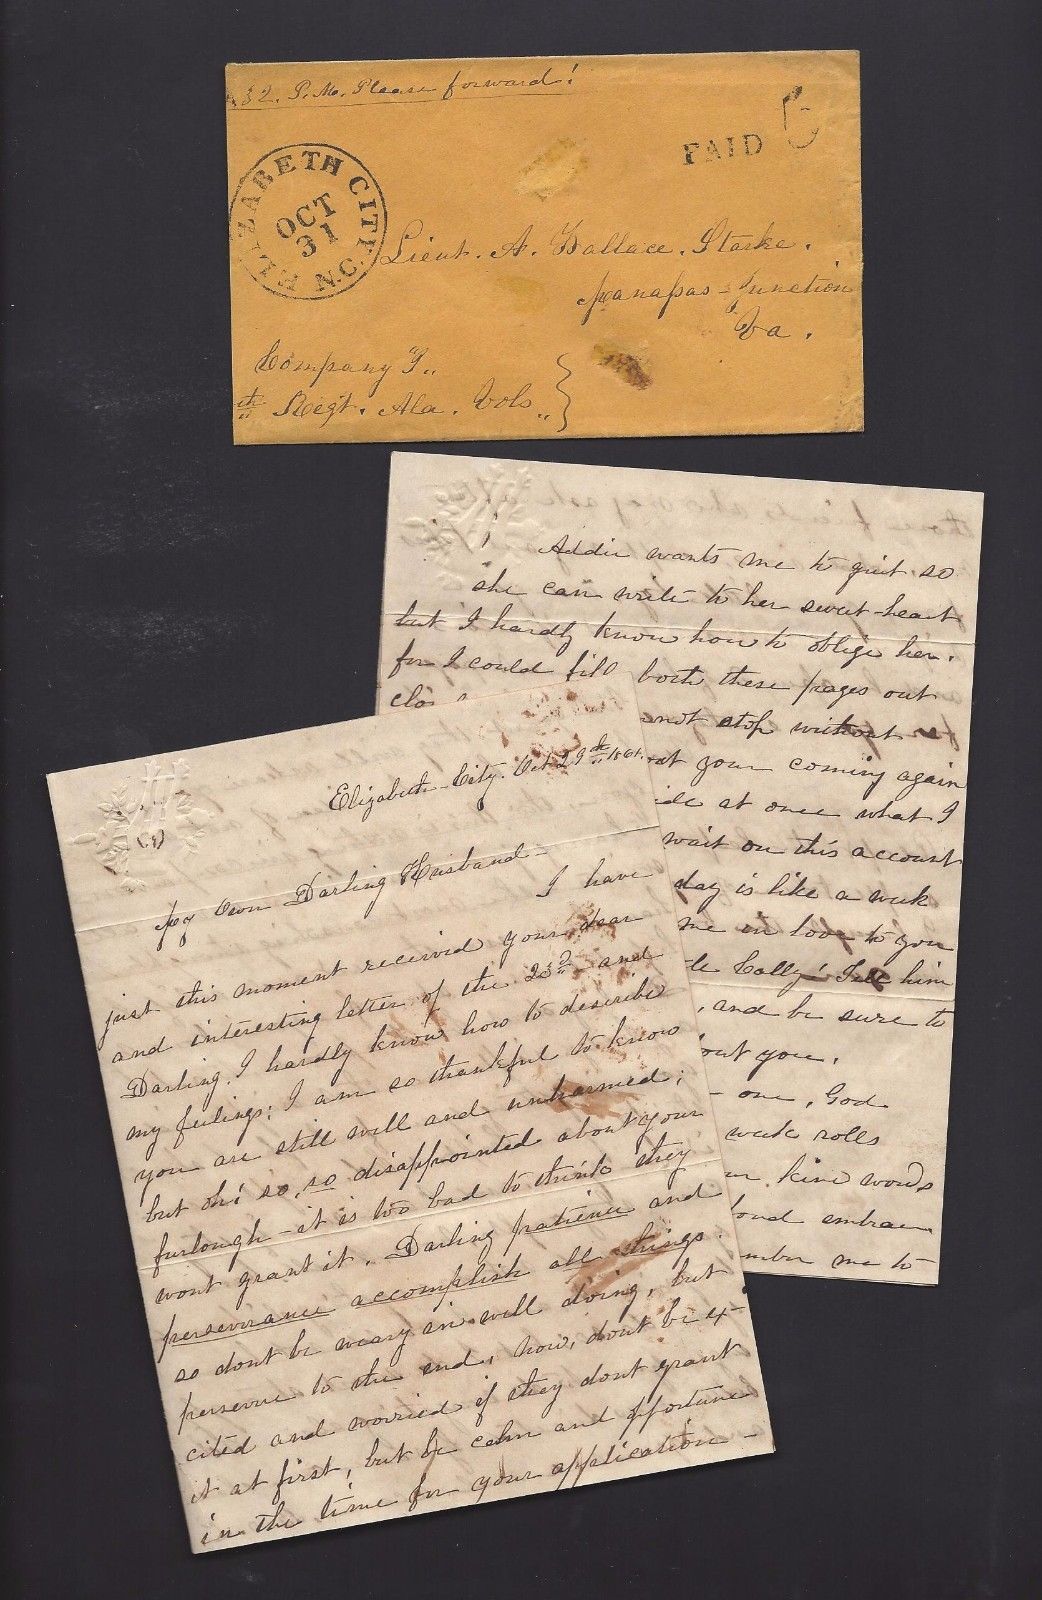 32. P. M. Please forward!
ELIZABETH CITY N.C.
OCT
31
PAID 5
Lieut. A. Wallace. Starke.
Manassas = Junction
Va.
Company I..
th Regt. Ala. Vols..
Addie wants me to quit so
she can write to her sweet-heart
but I hardly know how to oblige her.
for I could fill both these pages out
clo
not stop without
your coming again
ide at once what I
wait on this account
day is like a week
me in love to you
Colly! Tell him
, and be sure to
out you.
one, God
week rolls
kind words
fond embrace
mber me to
(1)
Elizabeth-City. Oct 29th 1861.
My Own Darling Husband-
I have
just this moment received your dear
and interesting letter of the 23d and
Darling. I hardly know how to describe
my feelings; I am so thankful to know
you are still well and unharmed;
but oh! so, so disappointed about your
furlough - it is too bad to think they
wont grant it. Darling patience and
perseverance accomplish all things.
so dont be weary in well doing, but
persevere to the end, now, dont be ex-
cited and worried if they dont grant
it at first, but be calm and opportune
in the time for your application -